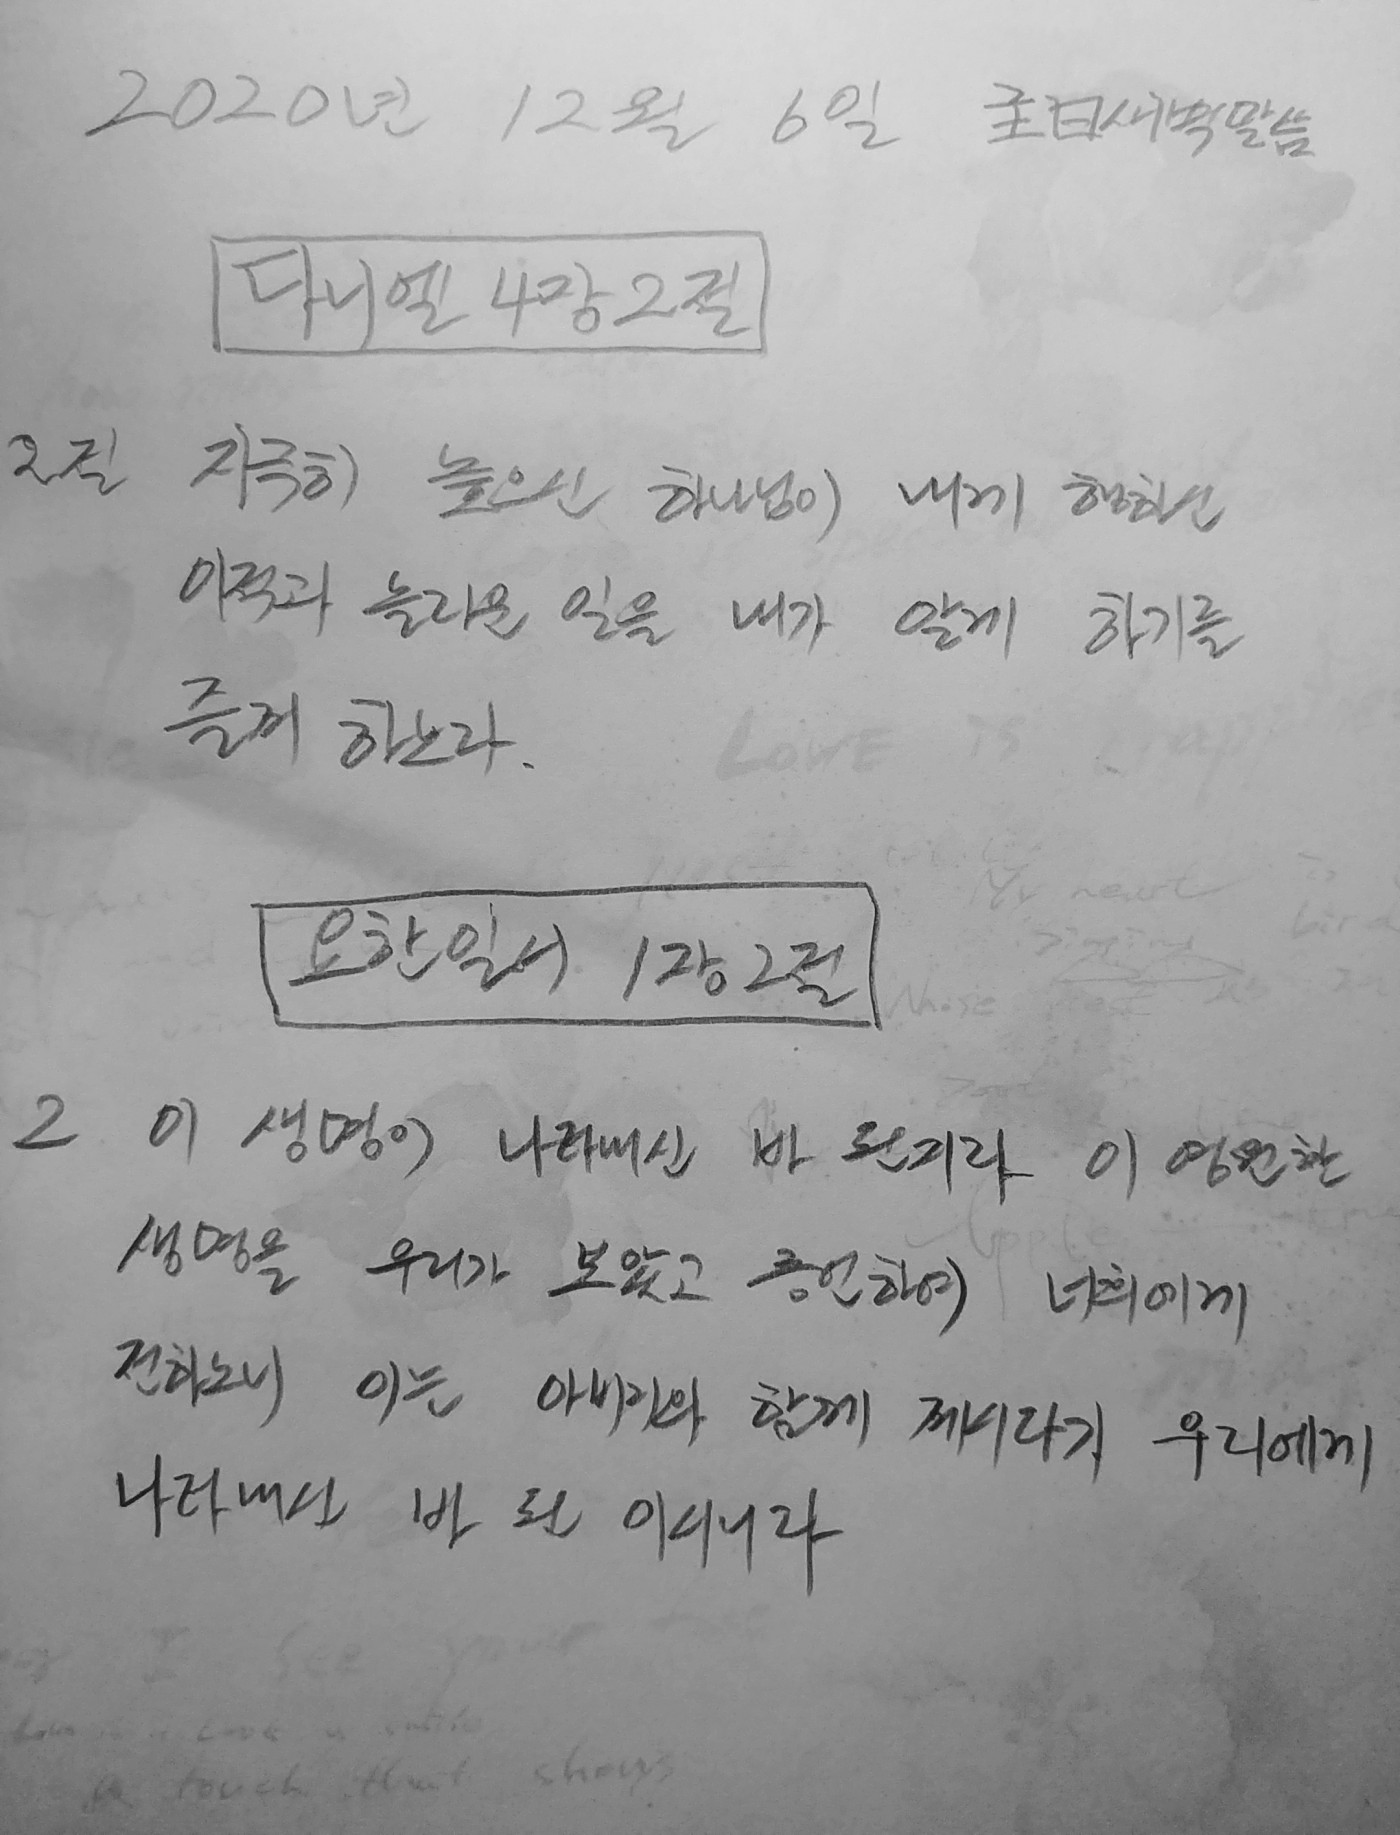 2020년 12월 6일 主日새벽말씀
다니엘 4장2절
2절 지극히 높으신 하나님이 내게 행하신
이적과 놀라운 일을 내가 알게 하기를
즐겨 하노라.
LOVE is
요한일서 1장2절
2 이 생명이 나타내신 바 된지라 이 영원한
생명을 우리가 보았고 증언하여 너희에게
전하노니 이는 아버지와 함께 계시다가 우리에게
나타내신 바 된 이시니라
I see your
a touch that shows